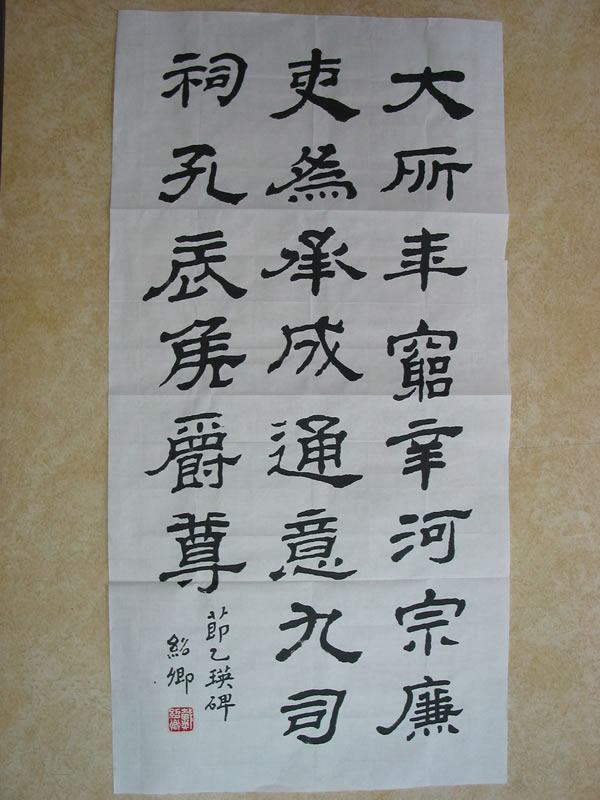 大所年窮幸河宗廉
吏為承成通意九司
祠孔辰侯爵尊
節乙瑛碑
紹卿